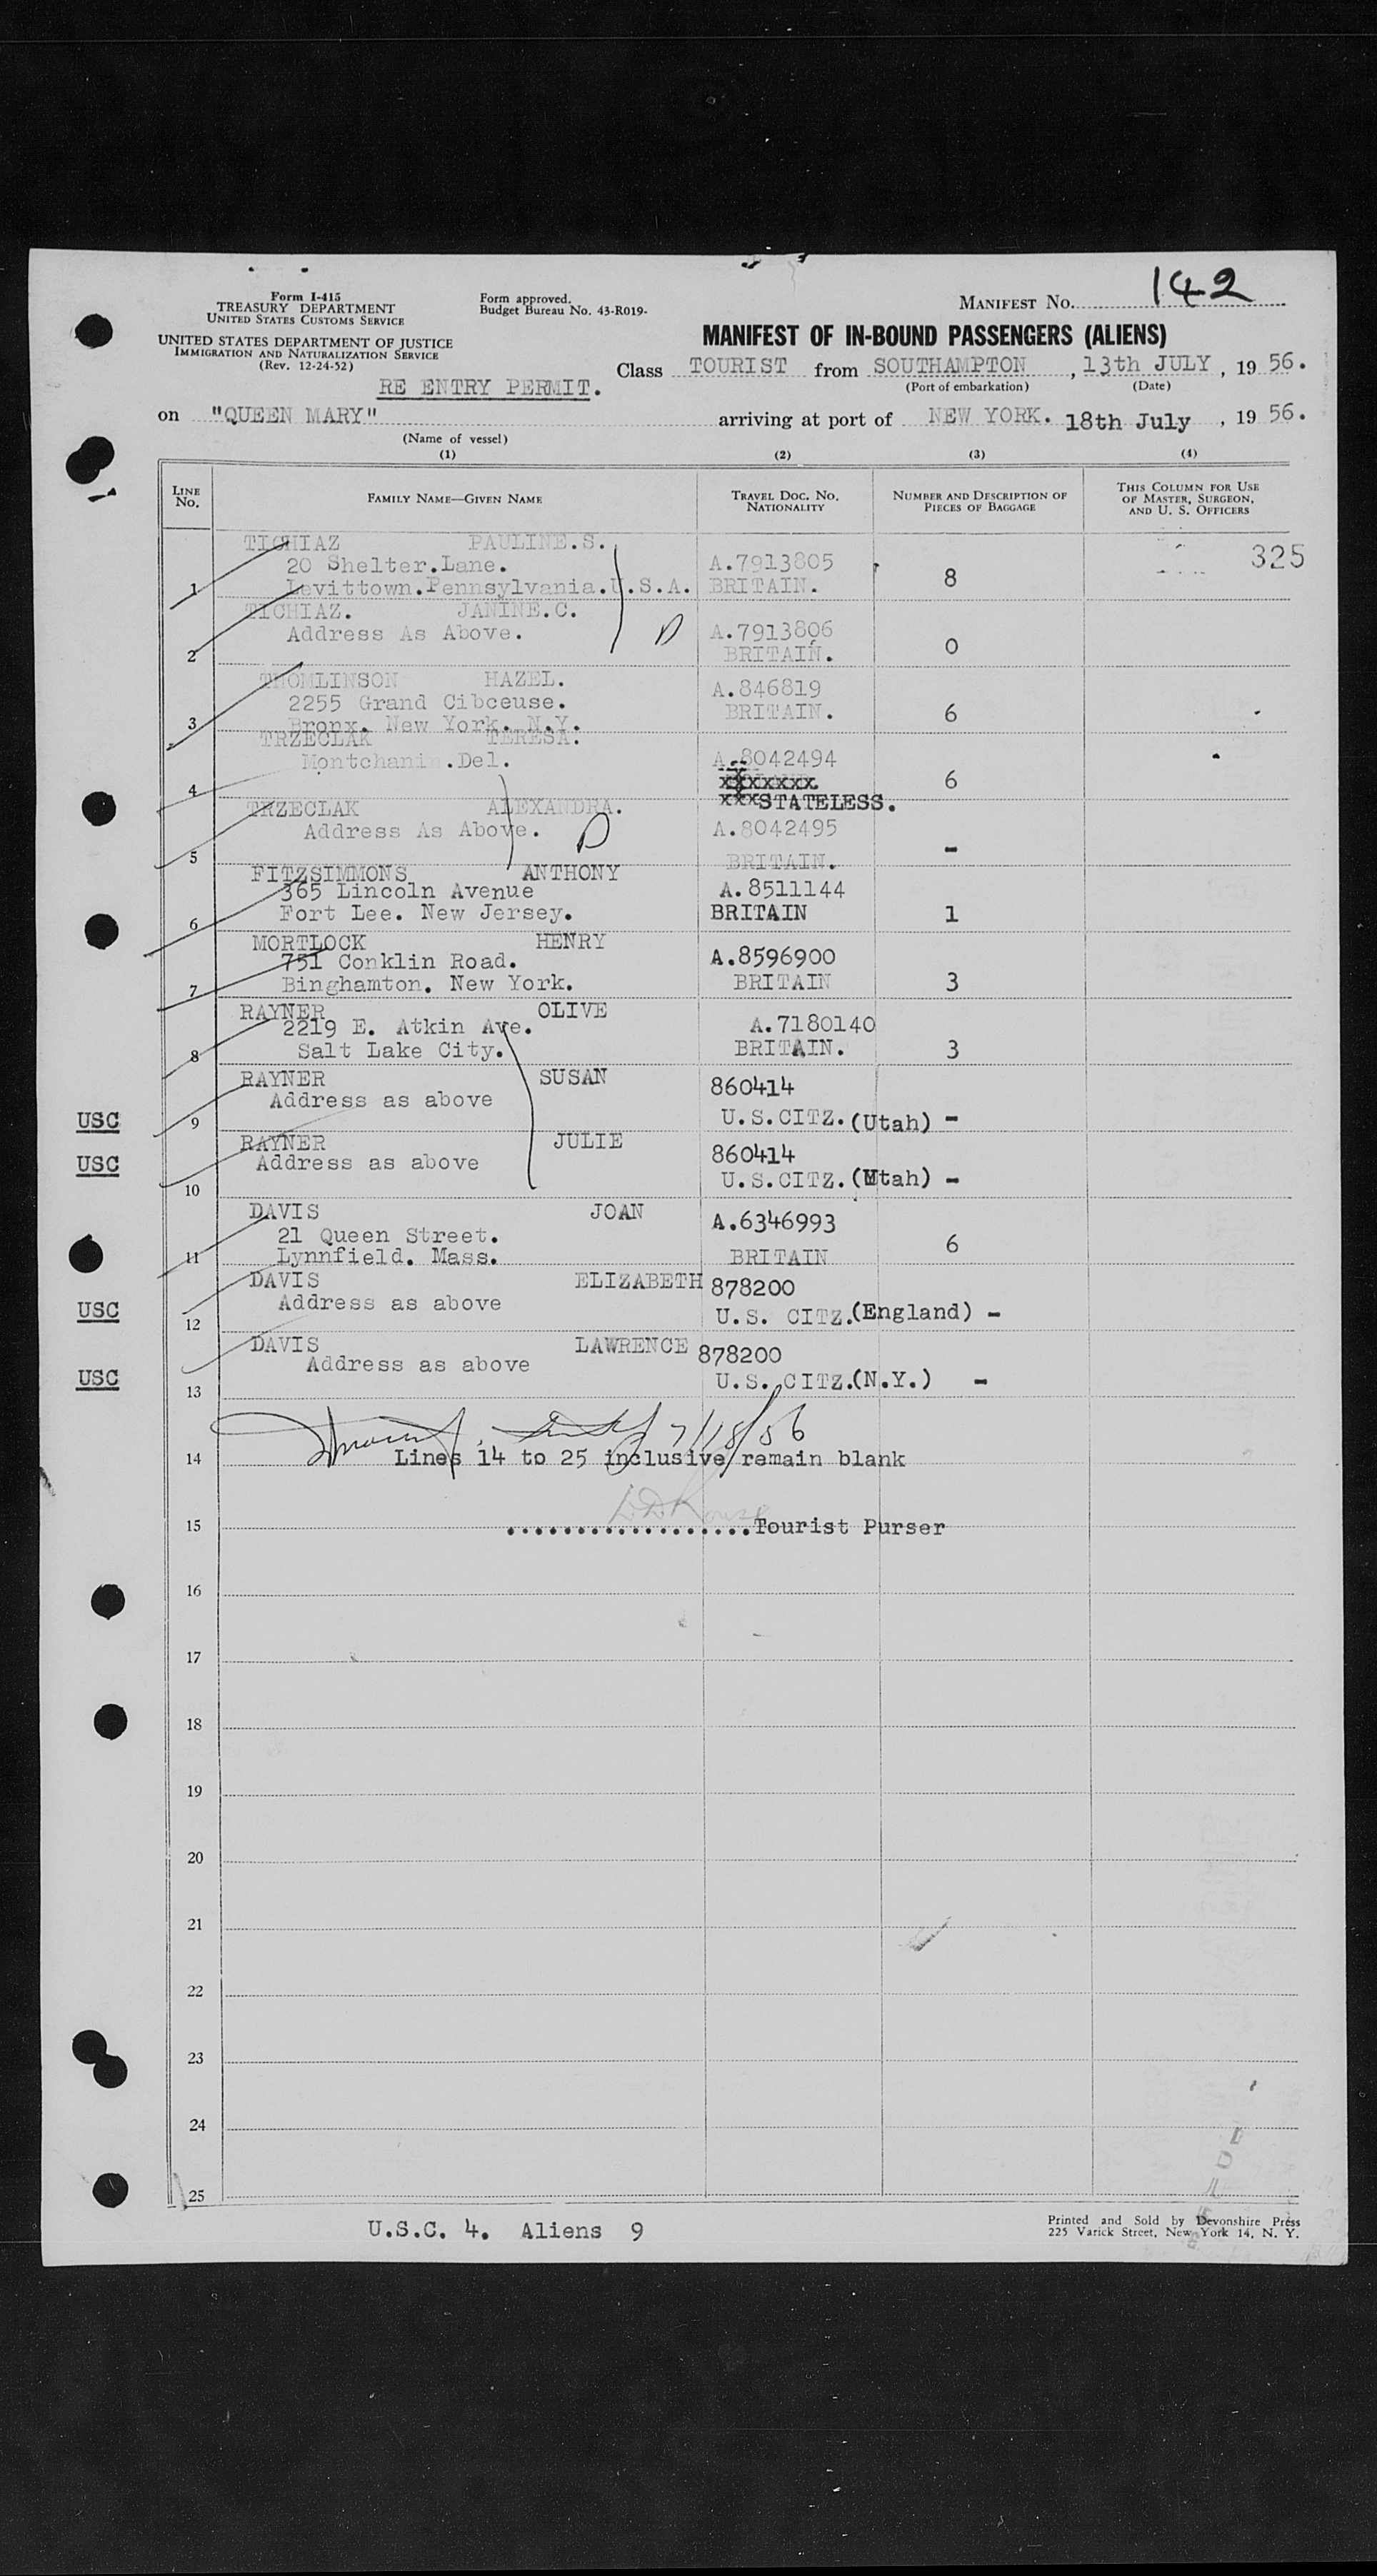 142
Form I-415
TREASURY DEPARTMENT
UNITED STATES CUSTOMS SERVICE
UNITED STATES DEPARTMENT OF JUSTICE
IMMIGRATION AND NATURALIZATION SERVICE
(Rev. 12-24-52)
Form approved.
Budget Bureau No. 43-R019-
MANIFEST NO.
MANIFEST OF IN-BOUND PASSENGERS (ALIENS)
Class TOURIST from SOUTHAMPTON, 13th JULY, 19 56.
(Port of embarkation) (Date)
RE ENTRY PERMIT.
on "QUEEN MARY" arriving at port of NEW YORK. 18th July, 19 56.
(Name of vessel)
(1) (2) (3) (4)
LINE NO. FAMILY NAME—GIVEN NAME TRAVEL DOC. NO. NATIONALITY NUMBER AND DESCRIPTION OF PIECES OF BAGGAGE THIS COLUMN FOR USE OF MASTER, SURGEON, AND U. S. OFFICERS
TICHIAZ PAULINE.S. 325
20 Shelter.Lane. A.7913805
1 Levittown.Pennsylvania.U.S.A. BRITAIN. 8
TICHIAZ. JANINE.C.
Address As Above. A.7913806
2 BRITAIN. 0
THOMLINSON HAZEL. A.846819
2255 Grand Cibceuse. BRITAIN.
3 Bronx. New York. N.Y. 6
TRZECLAK TERESA.
Montchani .Del. A.8042494
4 xxxxxxx 6
xxxSTATELESS.
TRZECLAK ALEXANDRA.
Address As Above. A.8042495
5 BRITAIN. -
FITZSIMMONS ANTHONY
365 Lincoln Avenue A.8511144
6 Fort Lee. New Jersey. BRITAIN 1
MORTLOCK HENRY
751 Conklin Road. A.8596900
7 Binghamton. New York. BRITAIN 3
RAYNER OLIVE
2219 E. Atkin Ave. A.7180140
8 Salt Lake City. BRITAIN. 3
RAYNER SUSAN 860414
Address as above
USC 9 U.S.CITZ.(Utah) -
RAYNER JULIE 860414
USC Address as above
10 U.S.CITZ.(Utah) -
DAVIS JOAN A.6346993
21 Queen Street.
11 Lynnfield. Mass. BRITAIN 6
DAVIS ELIZABETH 878200
Address as above
USC 12 U.S. CITZ.(England) -
DAVIS LAWRENCE 878200
Address as above
USC 13 U.S. CITZ.(N.Y.) -
7/18/56
14 Lines 14 to 25 inclusive remain blank
15 ..................Tourist Purser
16
17
18
19
20
21
22
23
24
25
U.S.C. 4. Aliens 9
Printed and Sold by Devonshire Press
225 Varick Street, New York 14, N. Y.